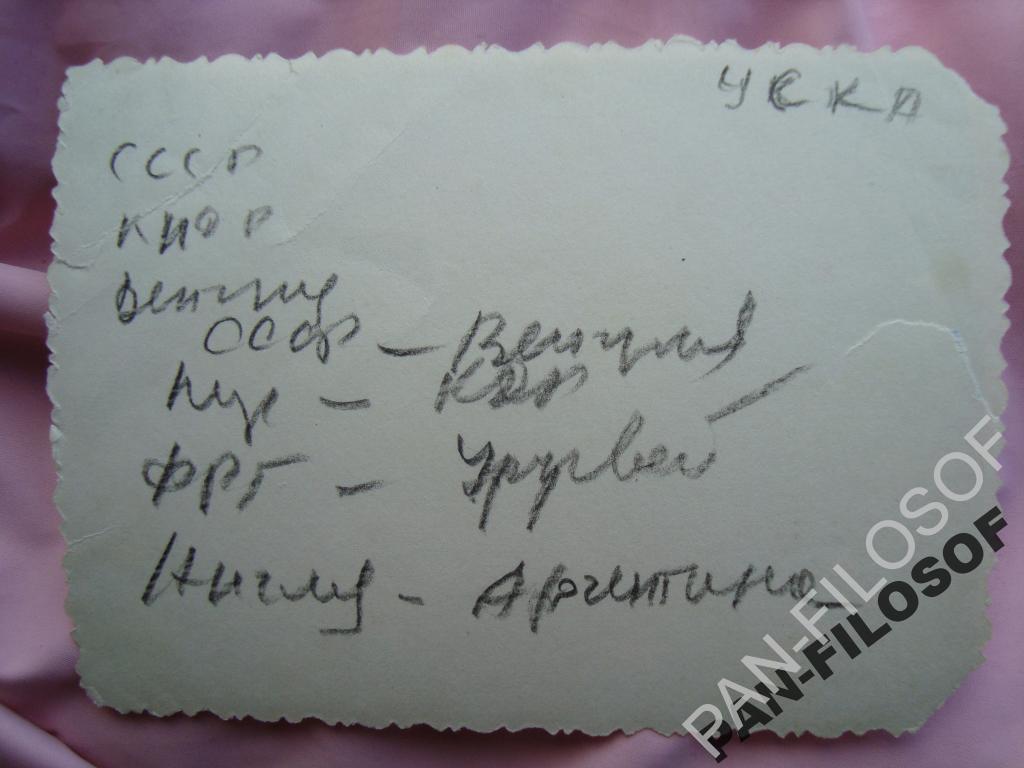 УСКА
СССР
КНДР
Венгия
СССР – Венгрия
– КДР
ФРГ – Уругвей
Англия – Аргентина
PAN-FILOSOF
PAN-FILOSOF